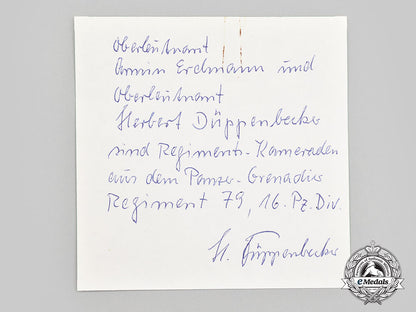 Oberleutnant
Armin Erdmann und
Oberleutnant
Herbert Düppenbecker
sind Regiments-Kameraden
aus dem Panzer-Grenadier
Regiment 79, 16. Pz. Div.
H. Düppenbecker
eMedals